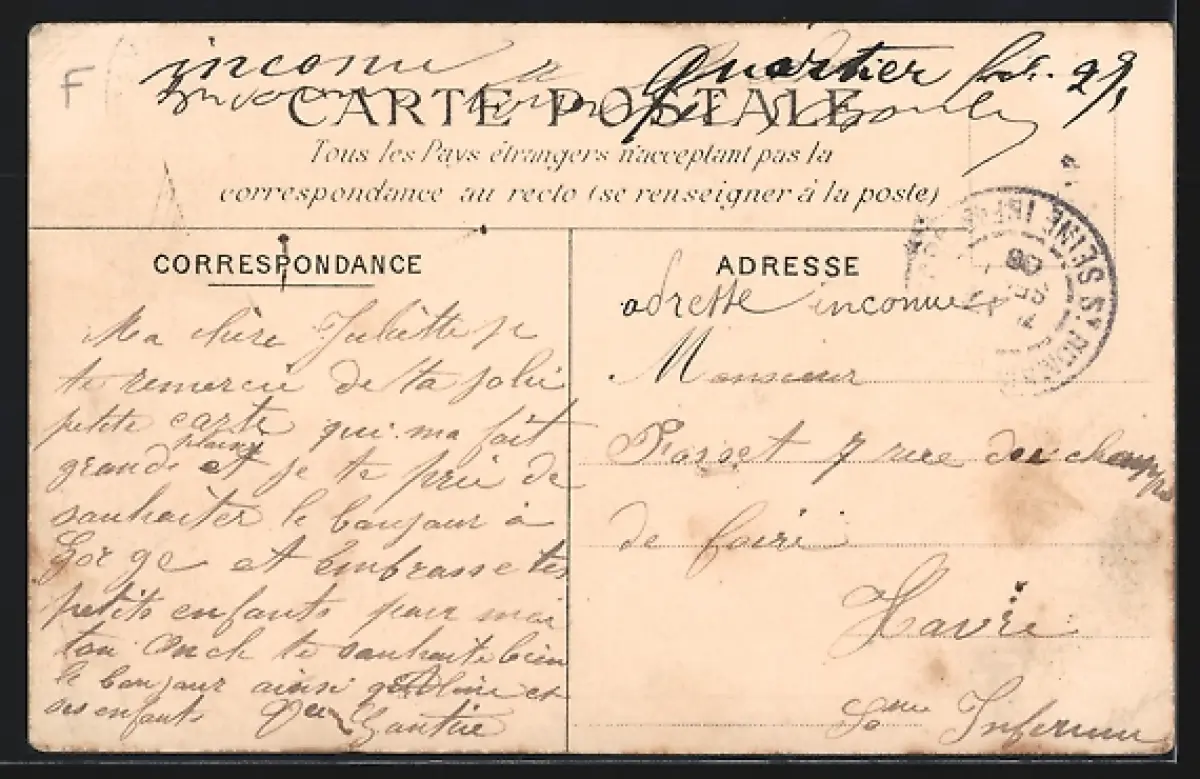 F
inconnu Quartier
CARTE POSTALE
Tous les Pays étrangers n'acceptant pas la
correspondance au recto (se renseigner à la poste)
CORRESPONDANCE
Ma chère Juliette je
te remercie de ta jolie
petite carte qui ma fait
grande plaisir et je te prie de
souhaiter le bonjour à
Gorge et embrasse tes
petits enfants pour moi
ton Oncle te souhaite bien
le bonjour ainsi et
ses enfants Gautie
ADRESSE
adresse inconnue
Monsieur
Posset 7 rue des champs
de foire
Havre
Seine Inferieure
SEINE INF
08